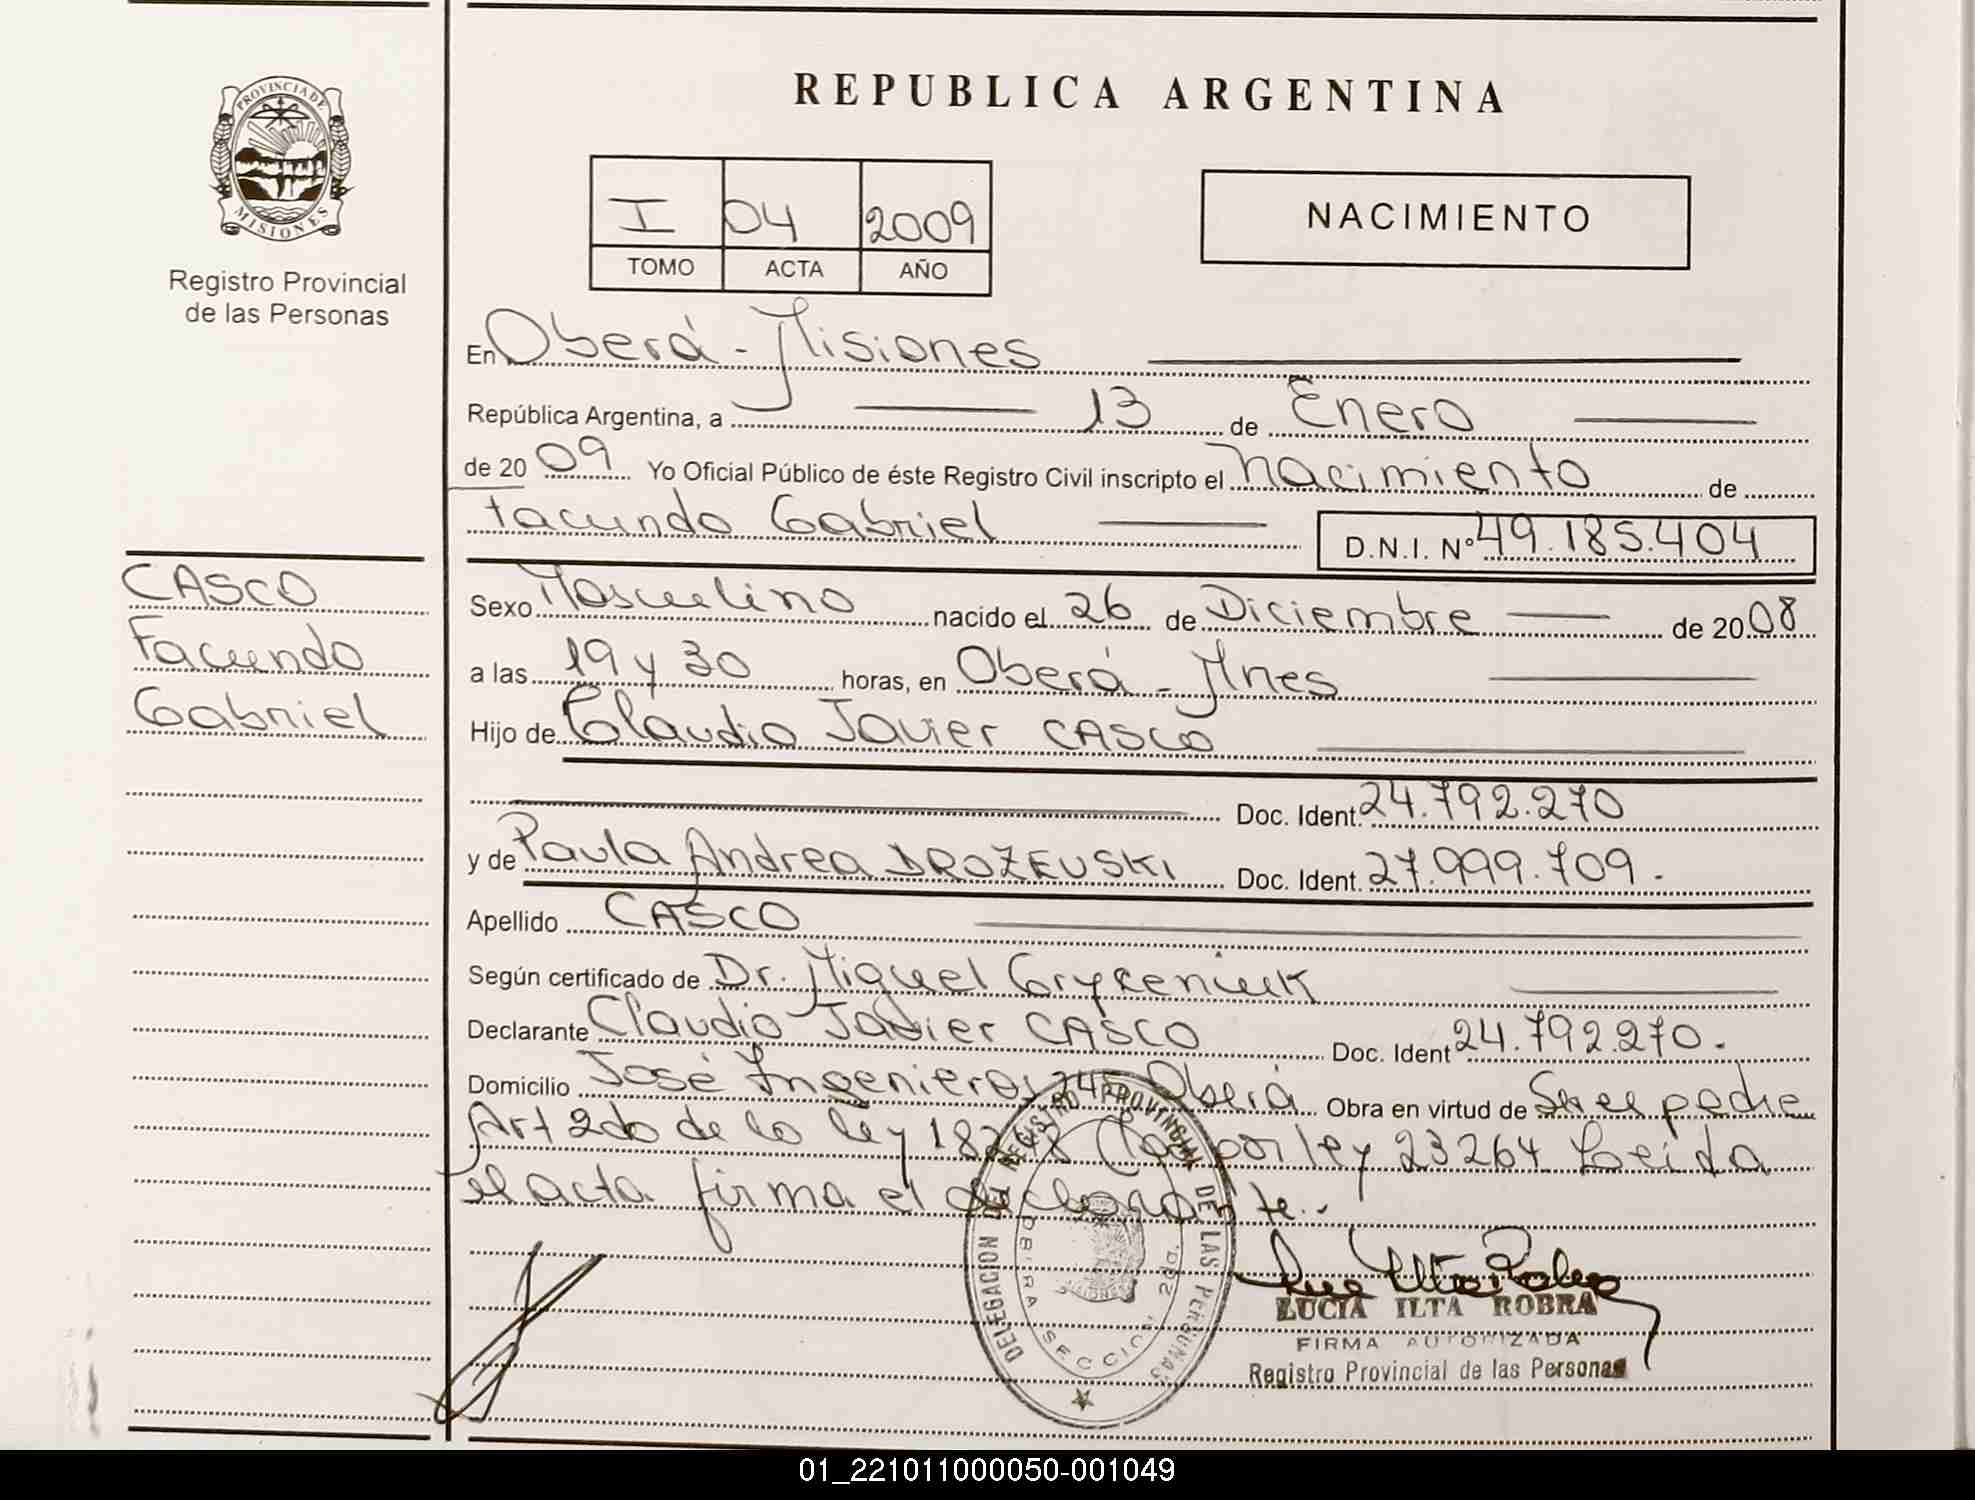 PROVINCIA DE
MISIONES
Registro Provincial
de las Personas
REPUBLICA ARGENTINA
I 04 2009
TOMO ACTA AÑO
NACIMIENTO
En Oberá - Misiones
República Argentina, a 13 de Enero
de 2009 Yo Oficial Público de éste Registro Civil inscripto el nacimiento de
Facundo Gabriel D.N.I. Nº 49.185.404
CASCO
Facundo
Gabriel
Sexo Masculino nacido el 26 de Diciembre de 2008
a las 19 y 30 horas, en Oberá - Mnes
Hijo de Claudio Javier CASCO
Doc. Ident. 24.792.270
y de Paula Andrea DROZEUSKI Doc. Ident. 27.999.709.
Apellido CASCO
Según certificado de Dr. Miguel
Declarante Claudio Javier CASCO Doc. Ident 24.792.270.
Domicilio José Ingenieros Oberá Obra en virtud de
Art 2do de la ley por ley 23264 Leída
el acta firma el declarante.
DELEGACION DEL REGISTRO PROVINCIAL DE LAS PERSONAS
SECCION 2da.
LUCIA ILTA ROBRA
FIRMA AUTORIZADA
Registro Provincial de las Personas
01_221011000050-001049